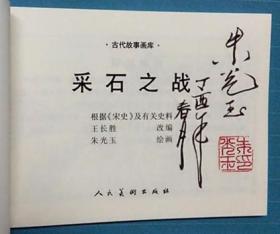 ·古代故事画库·
采石之战
根据《宋史》及有关史料
王长胜 改编
朱光玉 绘画
人民美术出版社
朱光玉
丁酉年
春月